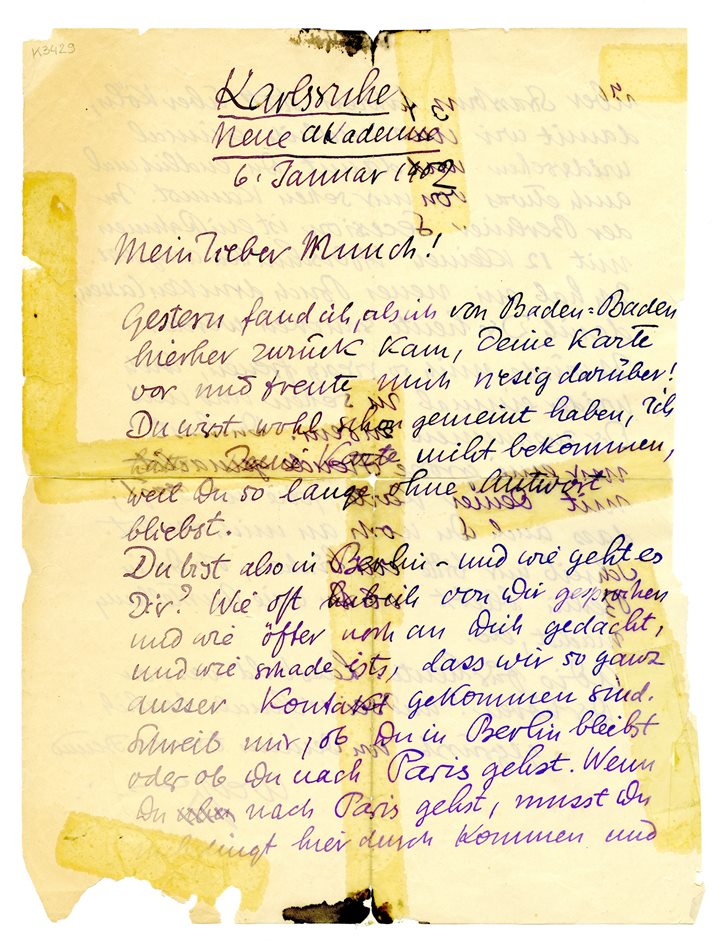 K3429
Karlsruhe
Neue Akademie
6. Januar 1902
Mein lieber Munch!
Gestern fand ich, als ich von Baden=Baden
hierher zurück kam, Deine Karte
vor und freute mich riesig darüber!
Du wirst wohl schon gemeint haben, ich
Karte nicht bekommen,
weil Du so lange ohne Antwort
bliebst.
Du bist also in Berlin – und wie geht es
Dir? Wie oft hab ich von Dir gesprochen
und wie öfter noch an Dich gedacht,
und wie schade ists, dass wir so ganz
ausser Kontakt gekommen sind.
Schreib mir, ob Du in Berlin bleibst
oder ob Du nach Paris gehst. Wenn
Du nach Paris gehst, musst Du
hier durch kommen und